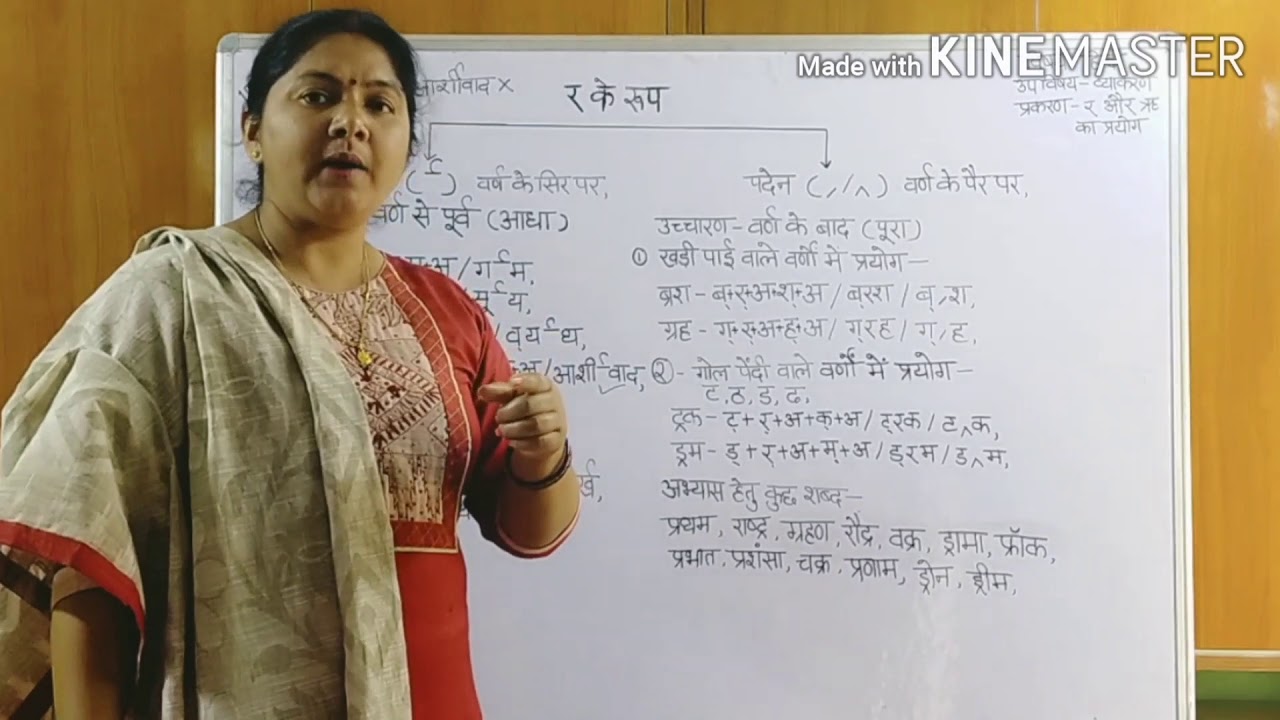 Made with KINEMASTER
आर्शीवाद ×
र के रूप
उपविषय - व्याकरण
प्रकरण - र और ऋ
का प्रयोग
( र्  ) वर्ण के सिर पर,
वर्ण से पूर्व (आधा)
म+अ / गर्म,
र्य,
आर्शीवाद,
पदेन ( ्र / ‸ ) वर्ण के पैर पर,
उच्चारण - वर्ण के बाद (पूरा)
① खडी पाई वाले वर्णो में प्रयोग —
ब्रश - ब्+र्+अ+श+अ / ब्रश / ब्‚श,
ग्रह - ग्+र्+अ+ह्+अ / ग्रह / ग्‚ह,
② - गोल पेंदी वाले वर्णों में प्रयोग —
ट, ठ, ड, ढ,
ट्रक - ट्+र्+अ+क+अ / ट्रक / ट‸क,
ड्रम - ड्+र्+अ+म्+अ / ड्रम / ड‸म,
अभ्यास हेतु कुछ शब्द —
प्रथम, राष्ट्र, ग्रहण, रौद्र, वक्र, ड्रामा, फ्रॉक,
प्रभात, प्रशंसा, चक्र, प्रणाम, ड्रोन, ड्रीम,